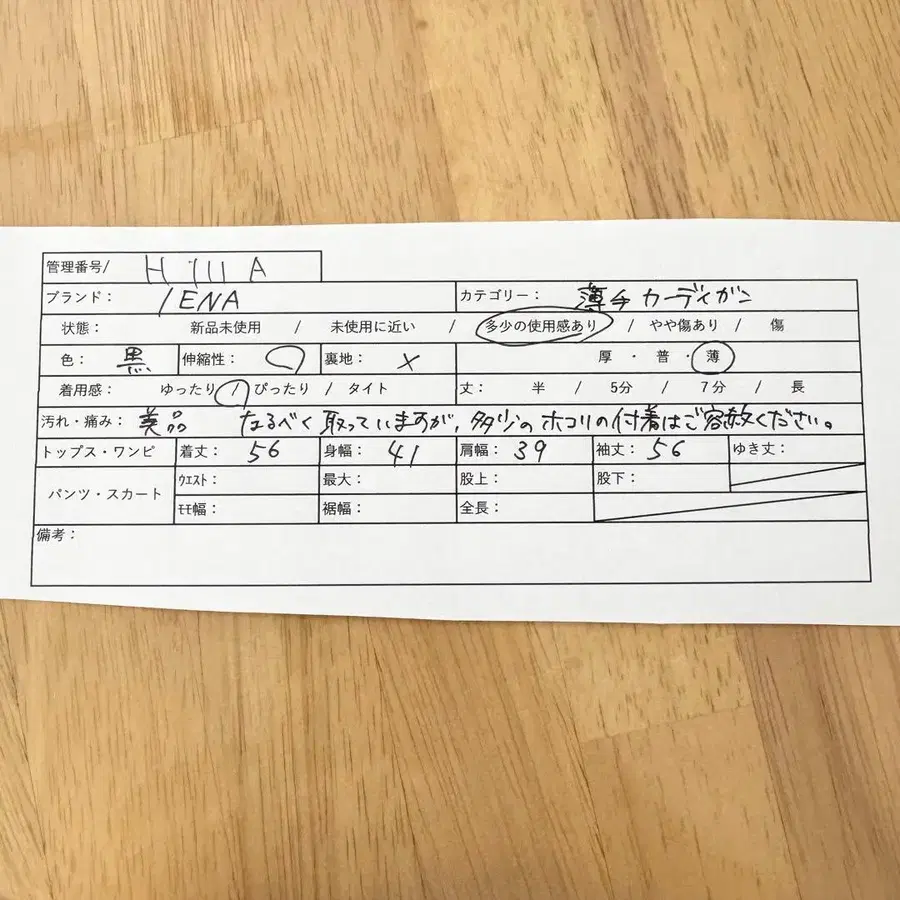 管理番号/ H 111 A
ブランド： IENA カテゴリー： 薄手カーディガン
状態： 新品未使用 / 未使用に近い / 多少の使用感あり / やや傷あり / 傷
色： 黒 伸縮性： ○ 裏地： × 厚・普・薄
着用感： ゆったり / ぴったり / タイト 丈： 半 / 5分 / 7分 / 長
汚れ・痛み： 美品 なるべく取っていますが、多少のホコリの付着はご容赦ください。
トップス・ワンピ 着丈： 56 身幅： 41 肩幅： 39 袖丈： 56 ゆき丈：
パンツ・スカート ｳｴｽﾄ： 最大： 股上： 股下：
ﾓﾓ幅： 裾幅： 全長：
備考：